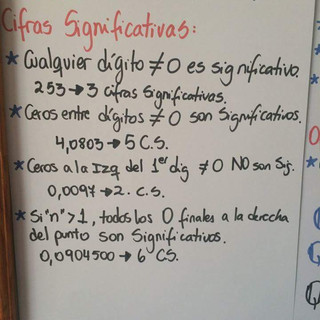 Cifras Significativas:
* Cualquier dígito ≠ 0 es significativo.
253 → 3 Cifras Significativas.
* Ceros entre dígitos ≠ 0 son Significativos.
4,0803 → 5 C.S.
* Ceros a la Izq del 1er dig ≠ 0 NO son Sig.
0,0097 → 2. C.S.
* Si "n" > 1, todos los 0 finales a la derecha
del punto son Significativos.
0,0904500 → 6 CS.